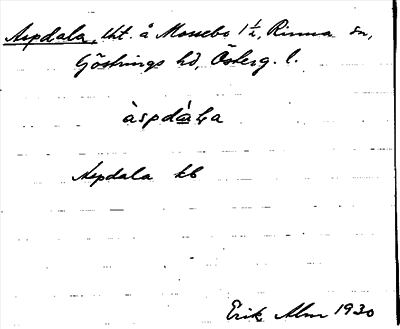 Aspdala, lht. å Mossebo 1 ½, Rinna sn,
Göstrings hd, Österg. l.
àspdála
Aspdala kb
Erik Alm 1930